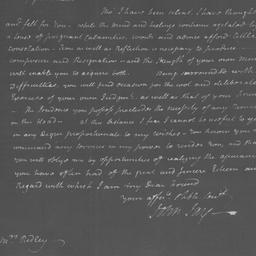 Tho' I have been silent, I have thought
and felt for You. while the mind and feelings continue agitated by
a sense of poignant Calamities, words and advice afford little
Consolation. Time as well as Reflection is necessary to produce
composure and Resignation — and the strength of your own mind
will enable you to acquire both. Being surrounded with
Difficulties, you will find occasion for the cool and deliberate
Exercise of your own Judgmt. as well as that of your Friends
The Prudence you possess precludes the necessity of any Remarks
on this Head — at this distance I fear I cannot be useful to you
in any Degree proportionate to my wishes. You know you may
command any Services in my power to render You, and that
you will oblige me by opportunities of realizing the assurances
you have often had of the great and sincere Esteem and
Regard with which I am my Dear
your affte. &
John Jay
Mrs. Ridley